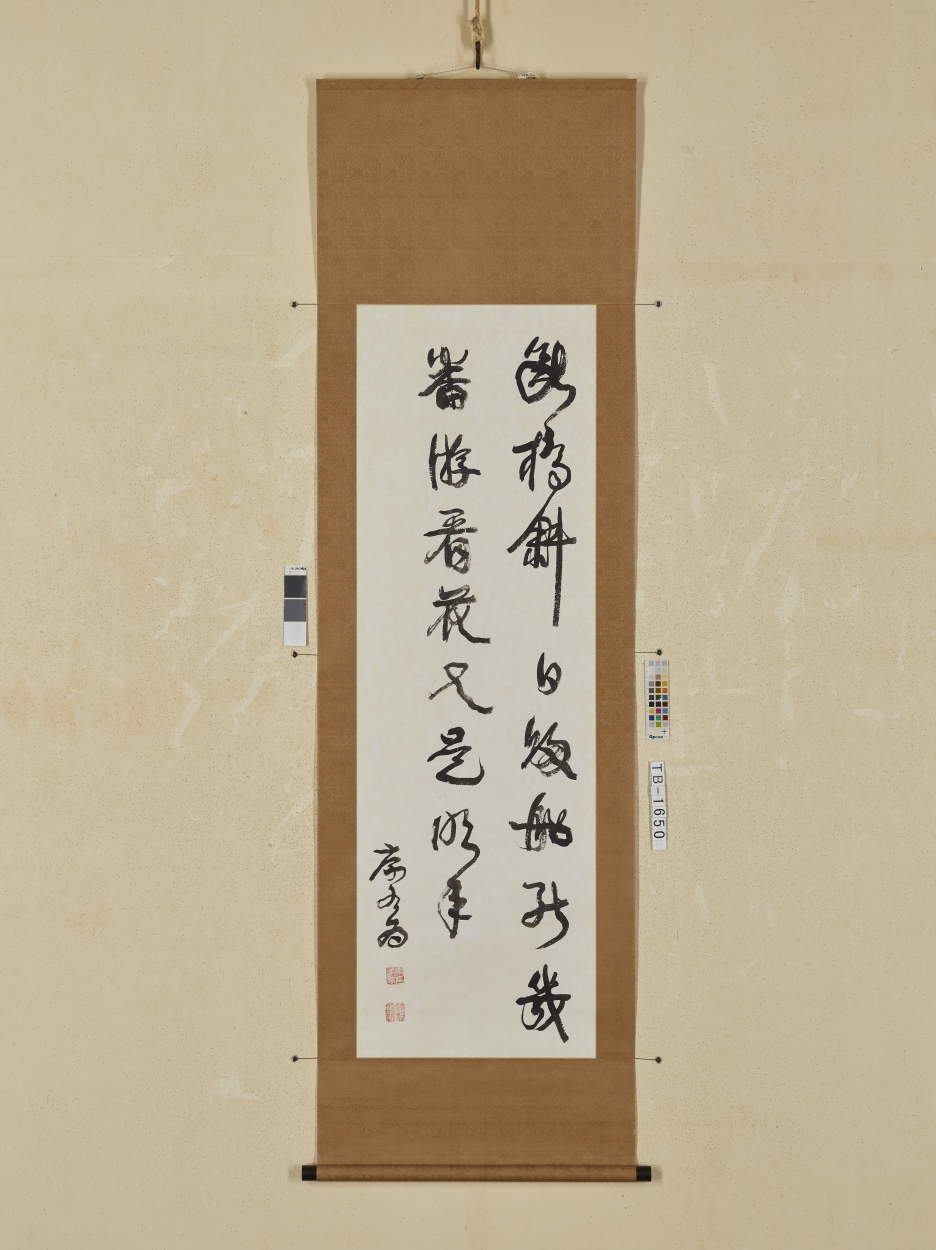 斷橋斜日歸船能幾
番游看花又是明年
康有為
TB-1650